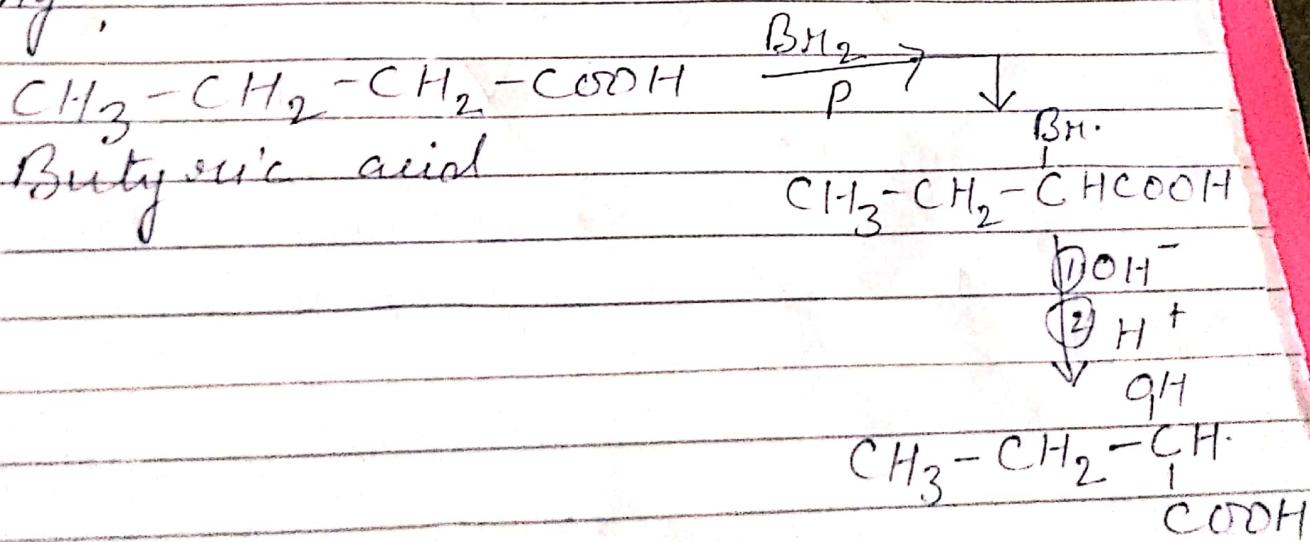 y.
CH₃-CH₂-CH₂-COOH Br₂ P
Butyric acid
Br.
CH₃-CH₂-CHCOOH
① OH⁻
② H⁺
OH
CH₃-CH₂-CH.
COOH